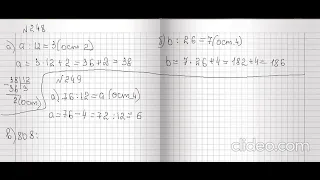 №248
а) а : 12 = 3 (ост 2)
а = 3 · 12 + 2 = 36 + 2 = 38
38 12
36 3
2 (ост)
№249
а) 76 : 12 = а (ост 4)
а = 76 - 4 = 72 : 12 = 6
в) 808 :
б) b : 26 = 7 (ост 4)
b = 7 · 26 + 4 = 182 + 4 = 186
clideo.com